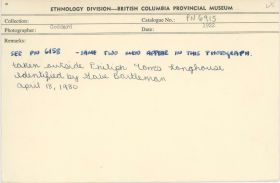 ETHNOLOGY DIVISION—BRITISH COLUMBIA PROVINCIAL MUSEUM
Collection: Catalogue No.: PN 6915
Photographer: Goddard Date: 1922
Remarks:
SEE PN 6158 - SAME TWO MEN APPEAR IN THIS PHOTOGRAPH.
taken outside Philip Tom's longhouse
identified by Dave Bartleman
April 13, 1980